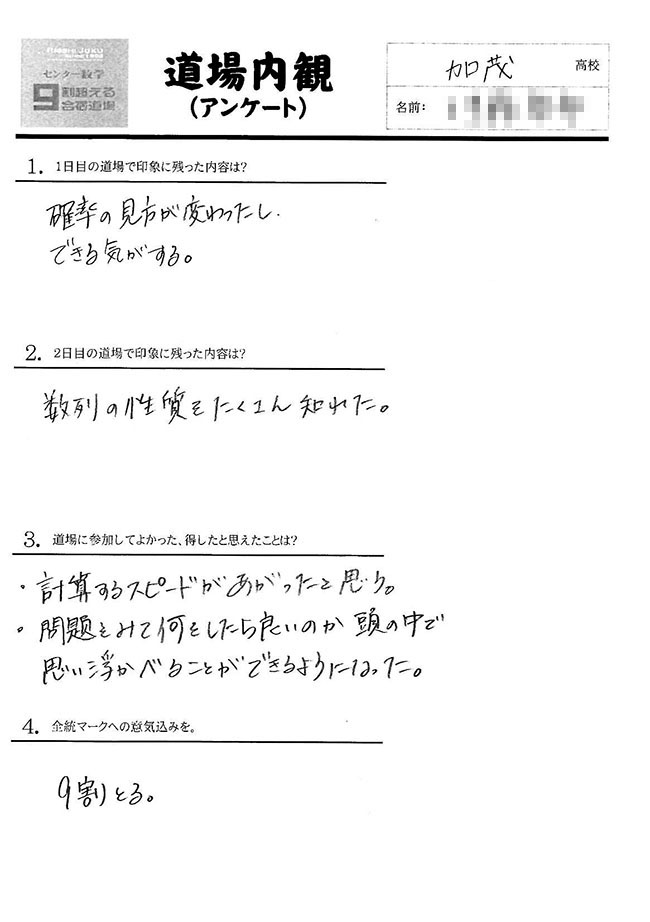 センター数学
9割超える
合宿道場
道場内観
(アンケート)
加茂 高校
名前:
1. 1日目の道場で印象に残った内容は?
確率の見方が変わったし.
できる気がする。
2. 2日目の道場で印象に残った内容は?
数列の性質をたくさん知れた。
3. 道場に参加してよかった、得したと思えたことは?
・計算するスピードがあがったと思う。
・問題をみて何をしたら良いのか頭の中で
思い浮かべることができるようになった。
4. 全統マークへの意気込みを。
9割とる。